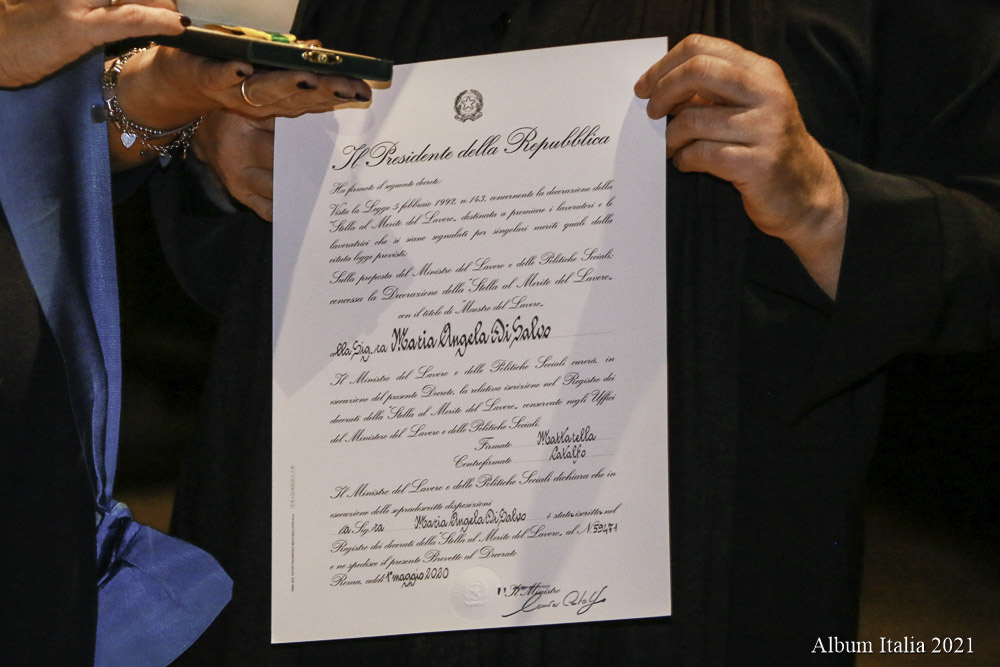 Il Presidente della Repubblica
Ha firmato il seguente decreto:
Vista la Legge 5 febbraio 1992, n. 143, concernente la decorazione della
"Stella al Merito del Lavoro", destinata a premiare i lavoratori e le
lavoratrici che si siano segnalati per singolari meriti quali dalla
citata legge previsti;
Sulla proposta del Ministro del Lavoro e delle Politiche Sociali;
concessa la Decorazione della "Stella al Merito del Lavoro"
con il titolo di Maestro del Lavoro
alla Sig.ra Maria Angela Di Salvo
Il Ministro del Lavoro e delle Politiche Sociali curerà, in
esecuzione del presente Decreto, la relativa iscrizione nel Registro dei
decorati della "Stella al Merito del Lavoro" conservato negli Uffici
del Ministero del Lavoro e delle Politiche Sociali.
Firmato Mattarella
Controfirmato Catalfo
Il Ministro del Lavoro e delle Politiche Sociali dichiara che in
esecuzione delle sopradescritte disposizioni
la Sig.ra Maria Angela Di Salvo è stata iscritta nel
Registro dei decorati della Stella al Merito del Lavoro, al N. 59471
e ne spedisce il presente Brevetto al Decorato
Roma, addì 1° maggio 2020
Il Ministro
Album Italia 2021